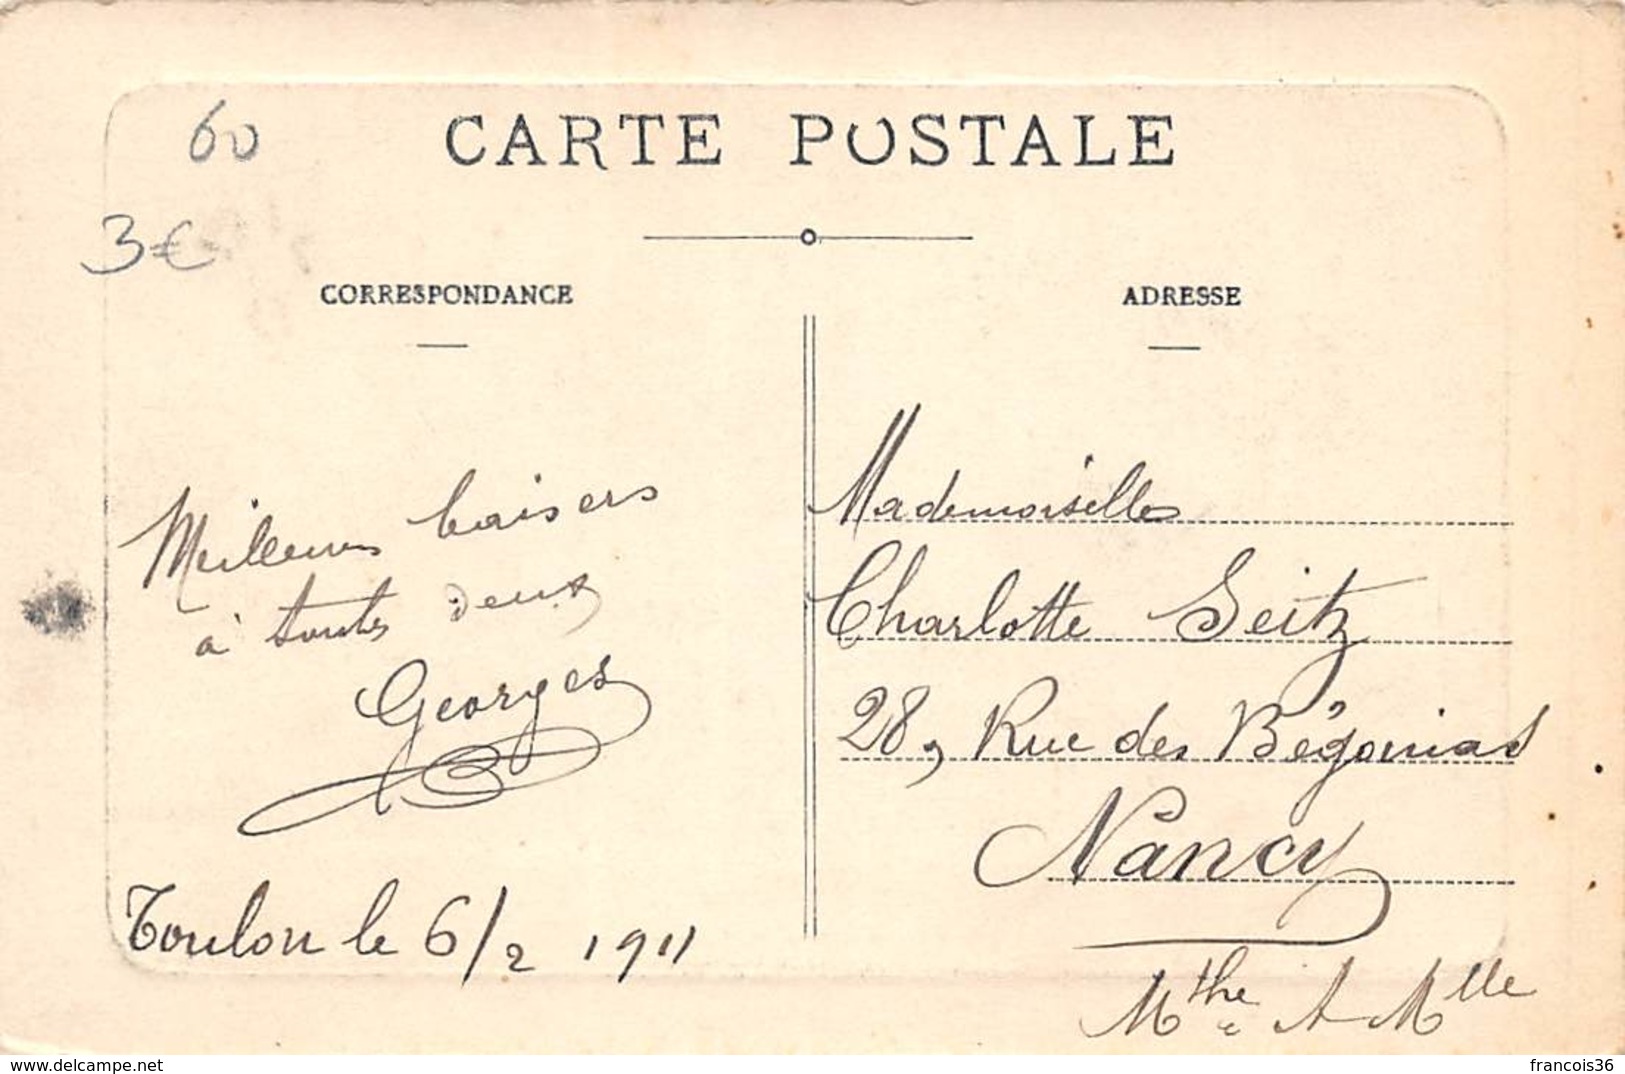 60
CARTE POSTALE
3€
CORRESPONDANCE
ADRESSE
Meilleurs baisers
à toutes deux
Georges
Toulon le 6/2 1911
Mademoiselle
Charlotte Seitz
28, Rue des Bégonias
Nancy
Mthe A Mlle
delcampe.net
francois36